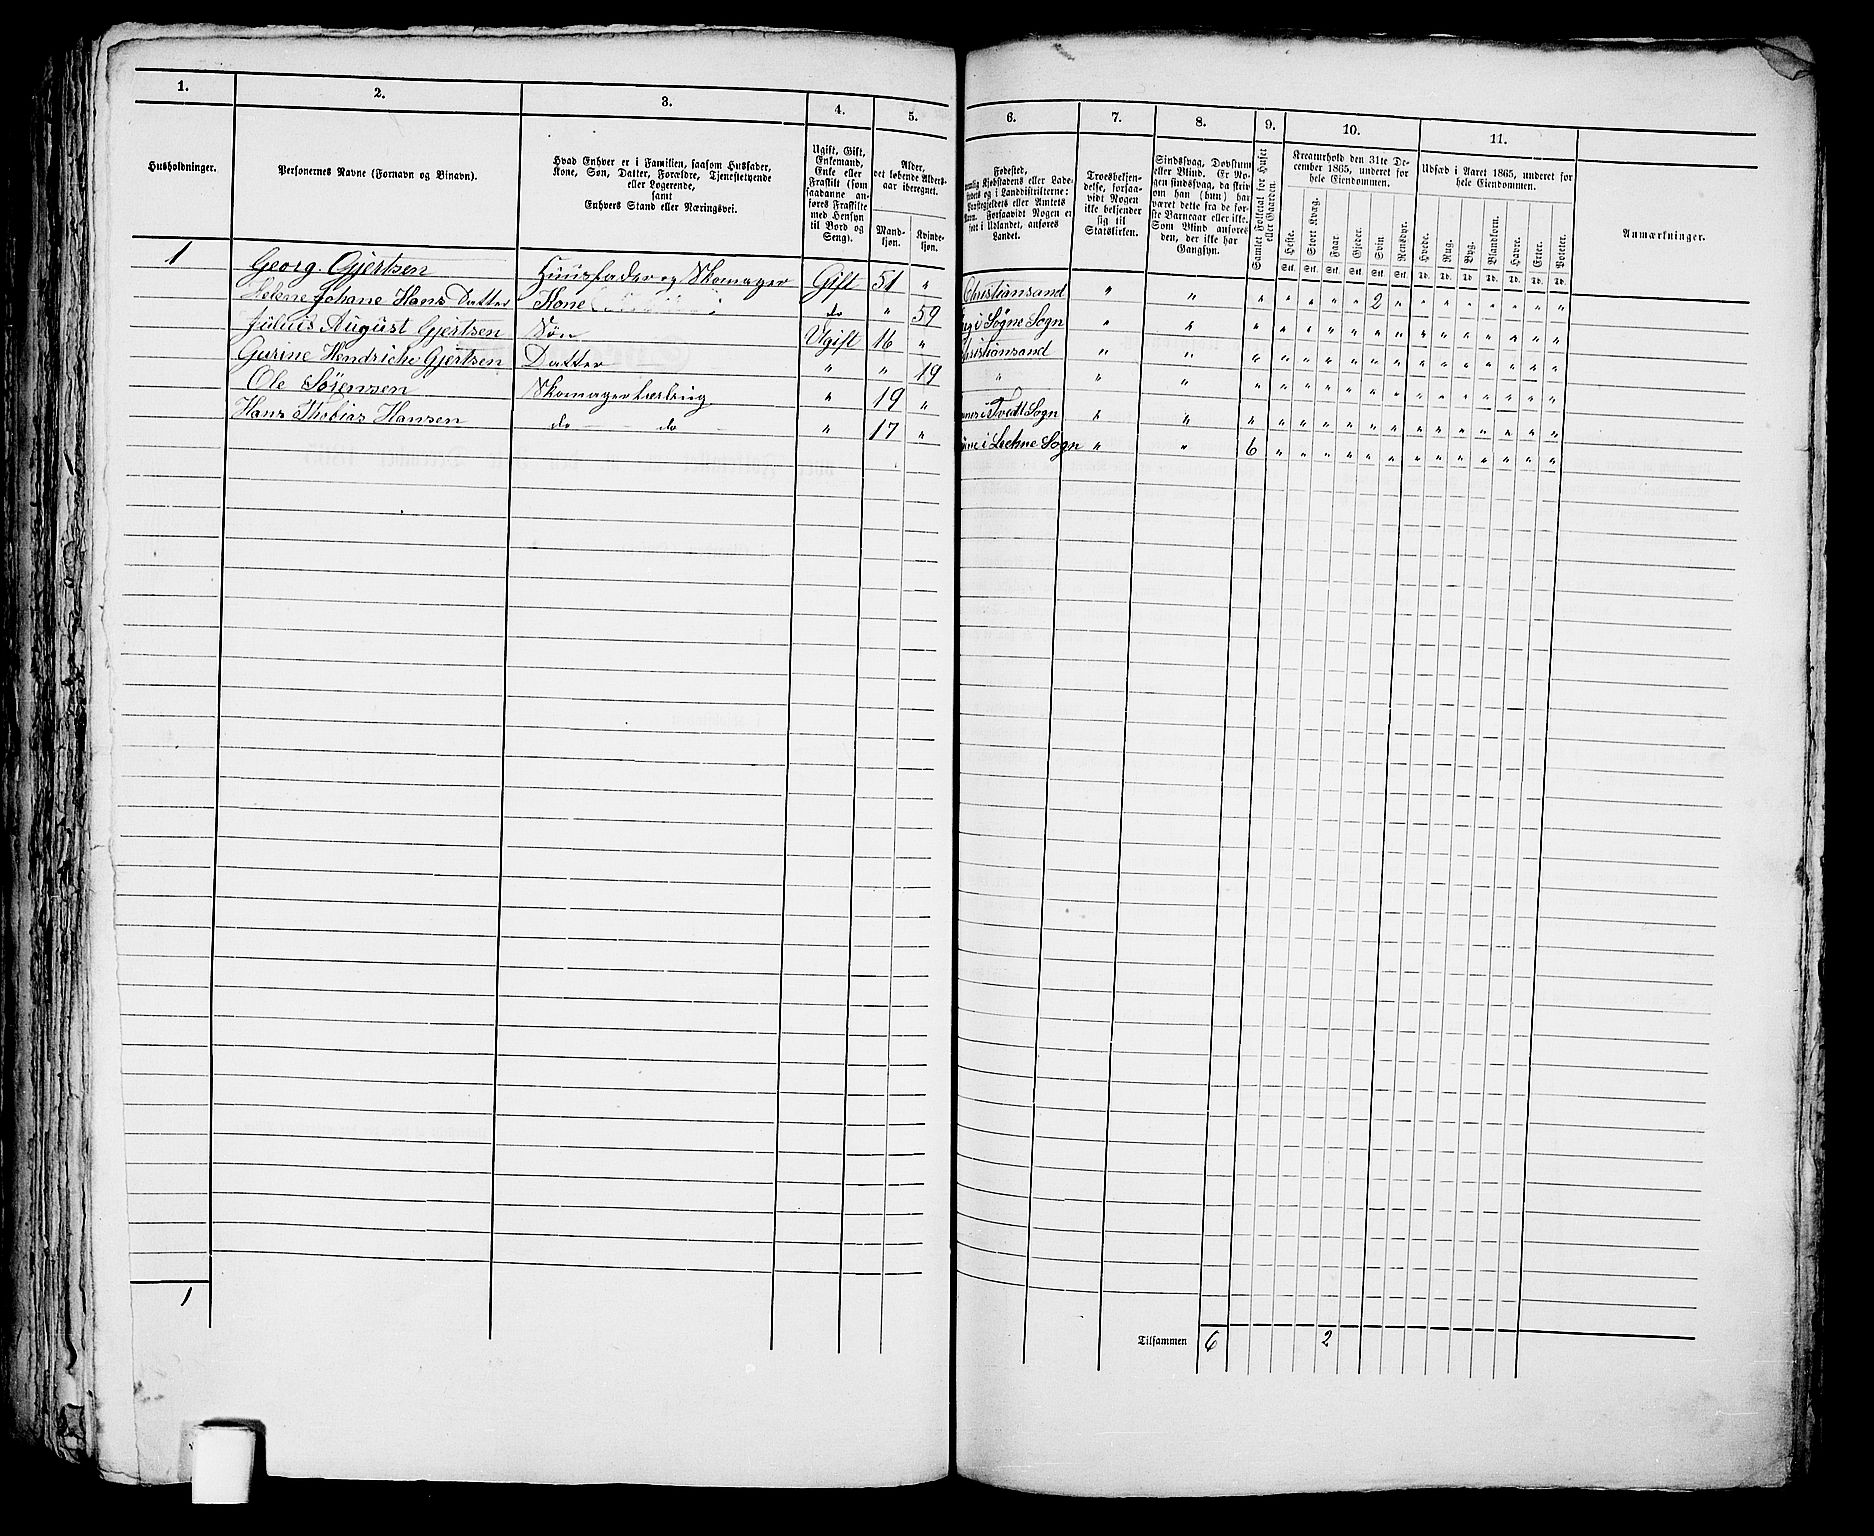 1. 2. 3. 4. 5. 6. 7. 8. 9. 10. 11.
Husholdninger.
Personernes Navne (Fornavn og Binavn).
Hvad Enhver er i Familien, saasom Husfader,
Kone, Søn, Datter, Forældre, Tjenestetyende
eller Logerende,
samt
Enhvers Stand eller Næringsvei.
Ugift, Gift,
Enkemand,
Enke eller
Fraskilt (som
saadanne an-
føres Fraskilte
med Hensyn
til Bord og
Seng).
Alder,
det løbende Alders-
aar iberegnet.
Mand-
kjøn.
Kvinde-
kjøn.
Fødested,
Troesbekjen-
delse, forsaa-
vidt Nogen
ikke bekjender
sig til
Statskirken.
Sindssvag, Døvstum
eller Blind. Er No-
gen sindssvag, da skriv
om han (hun) har
været dette fra de før-
ste Barneaar eller ikke.
Som Blind anføres
den, der ikke har
Gangsyn.
Samlet Folketal for Huset
eller Gaarden.
Kreaturhold den 31te De-
cember 1865, underet for
hele Eiendommen.
Heste. Stort Kvæg. Faar. Gjeder. Svin Rensdyr.
Stk. Stk. Stk. Stk. Stk. Stk.
Udsæd i Aaret 1865, underet for
hele Eiendommen.
Hvede. Rug. Byg. Blandkorn. Havre. Erter. Poteter.
Td. Td. Td. Td. Td. Td. Td.
Anmærkninger.
1 Georg. Gjertsen Huusfader og Skomager Gift 51 " Christiansand " " " " " " " 2 " " " " " " " "
Helene Johane Hans Datter Kone do " 59 i Søgne Sogn " " " " " " " " " " " " " " " "
Julius August Gjertsen Søn Ugift 16 " Christiansand " " " " " " " " " " " " " " " "
Gurine Hendriche Gjertsen Datter " " 19 " " " " " " " " " " " " " " " " "
Ole Sørensen Skomagerlærling " 19 " i Tvedt Sogn " " " " " " " " " " " " " " " "
Hans Thobias Hansen do do " 17 " Sogn " " 6 " " " " " " " " " " " " "
1
Tilsammen 6 2